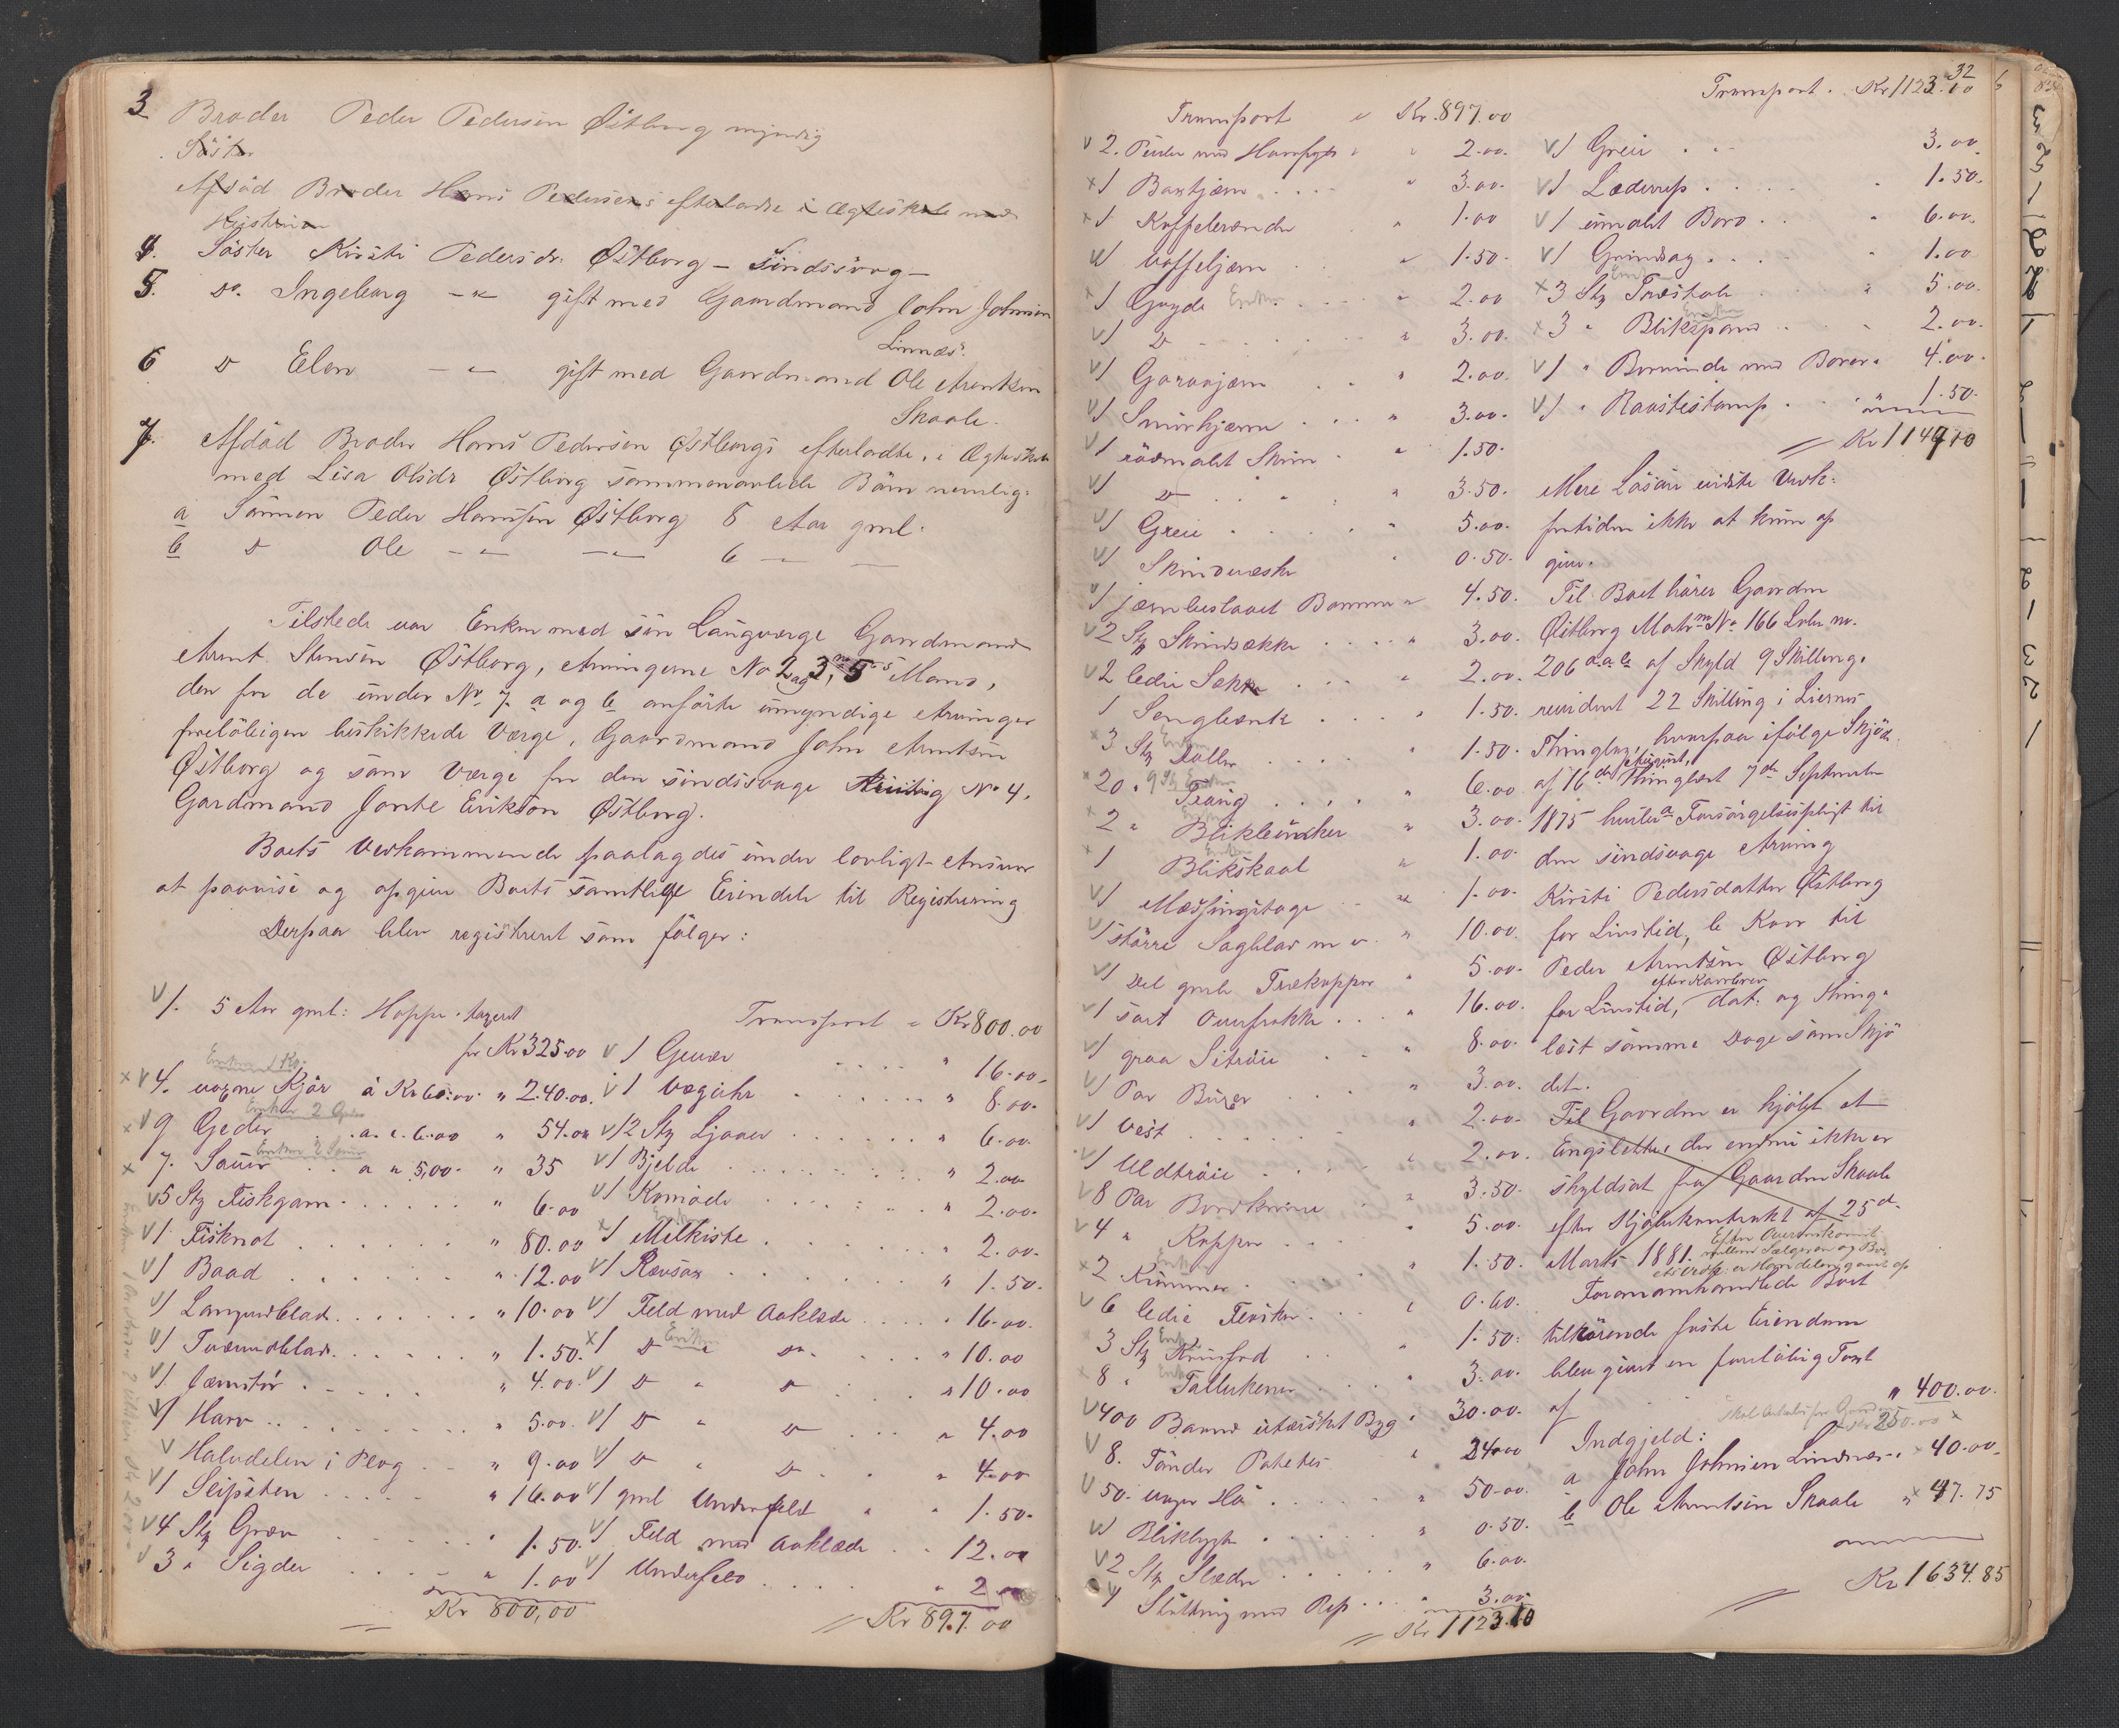 3 Broder Peder Pedersen Östborg myndig
Söster
Afdöd Broder Hans Pedersens efterladte i Ægteskab med
4. Söster Kirsti Pedersdr. Östborg – Sindssvag –
5. Do. Ingeborg –"– gift med Gaardmand John Johnsen
Linnæs.
6 D Elen –"– gift med Gaardmand Ole Arentsen
Skaale.
7. Afdöd Broder Hans Pedersen Östborgs efterladte, i Ægteskab
med Lisa Olsdr Östborg sammenavlede Börn nemlig:
a Sönnen Peder Hansen Östborg 8 Aar gml.
b D Ole –"– –"– 6 – –
Tilstede var Enken med sin Laugværge Gaardmand
Arnt Stensen Östborg, Arvingerne No 2, 3, og No 5's Mand,
den for de under No 7 a og b anförte umyndige Arvinger
foreløbigen beskikkede Værge, Gaardmand John Arntsen
Östborg og som Værge for den sindssvage Arving No 4,
Gardmand Jonte Erikson Östborg.
Boets Vedkommende paalagdes under lovligt Ansvar
at paavise og opgive Boets samtlige Eiendele til Registrering
Derpaa blev registreret som fölger:
V 1. 5 Aar gml: Hoppe taxeret
for Kr 325.00
Enken 1 Ko.
x V 4. Kjör à Kr 60.00 " 2.40.00.
Enken 2 Geder
x V 9 Geder a " 6.00 " 54.00
Enken 2 Sauer
x 7. Sauer a " 5,00 " 35
V 5 Stk Fiskgarn " 6.00
V 1. Fisknot " 80.00
V 1 Baad " 12.00
V 1 Langvedblad " 10.00
V 1 Tværvedblad " 1.50.
V 1. Jærnstör " 4.00.
V 1 Harv " 5.00.
V Halvdelen i Plog " 9.00
V 1 Slipsten " 16.00
V 4 Stk Græv " 1.50.
V 3 " Sigder " 1.00
Kr 800,00
Transport " Kr 800.00
V 1 Gevær " 16.00.
V 1 Vægúhr " 8.00.
V 12 Stk Ljaaer " 6.00.
V 1 Bjelde " 2.00
V 1 Komode " 2.00.
Enken
x 1 Melkiste " 2.00.
V 1 Rævsax " 1.50.
V 1 Feld med Aaklæde " 16.00.
x 1 D Enken " D. " 10.00
V 1 D " D " 10.00
V 1 D " D " 4.00
V 1 D " D " 4.00
V 1 gml Underfeld " 1.50.
V 1 Feld med Aaklæde " 12.00
V 1 Underfeld " 2.00
Kr 897.00
32
Transport " Kr. 897.00
V 2. " 2.00.
x 1 Baxtjærn " 3.00.
x 1 Kaffebrænder " 1.00
V 1 Vaffeljærn " 1.50.
x 1 Gryde Enken " 2.00
V 1 D " 3.00.
V 1 Gorojærn " 2.00.
V 1 Smörkjærne " 3.00.
V 1 rödmalet Skrin " 1.50.
V 1 D " 3.50.
V 1 Greie " 5.00.
V 1 Skindvæske " 0.50.
V 1 jærnbeslaaet Bomme " 4.50.
V 2 Stk Skindsække " 3.00.
V 2 ledie Sække " 2.00.
1 Sengbænk " 1.50.
Enken
x 3 Stk Koller " 1.50.
x 20 " 9 Stk Enken Traug " 6.00
Enken
x 2 " Blikbúnker " 3.00.
Enken
x 1 Blikskaal " 1.00.
V 1 Messingstage " 1.00.
V 1 större Sagblad m v. " 10.00.
V 1 Del gmle Trækopper " 5.00.
V 1 sort Overfrakke " 16.00.
V 1 graa Sitröie " 8.00.
V 1 Par Búxer " 3.00.
V 1 Vest " 2.00.
V 1 Uldtröie " 2.00.
V 8 Par Bordknive " 3.50.
V 4 " Kopper " 5.00.
Enken
x 2 Kummer " 1.50.
V 6 ledie Flasker " 0.60.
3 Stk Enken Krúsfad " 1.50.
x 8 " Enken Tallerkener " 3.00.
V 400 Baand utærsket Byg " 30.00.
V 8. Tönder Poteter " 24.00
V 50. Höe " 50.00.
V 1 Bliklygte " 0.50.
V 2 Stk Slæder " 6.00.
V 1 Slútting med Rep " 3.00
Kr 1123.10
Transport. Kr 1123.10
V 1 Greie 3.00.
V 1 Læderrep " 1.50.
V 1 úmalet Bord " 6.00.
V 1 Grindsag " 1.00
x 3 Stk Enken Træstole " 5.00.
x 3 " Enken Blikspand " 2.00.
V 1 " Borvinde med Borer " 4.00.
V 1 " Raastestamp " 1.50.
Kr 1147.10
Mere Lösöre vidste Vedk:
fortiden ikke at kúne op
give.
Til Boet hörer Gaarden
Östborg Matr. No 166 Löbe no.
206 a.a.b af Skyld 9 Skilling,
revideret 22 Skilling i Liernes
Thinglag, hvorpaa ifölge Skjöde
af 16de August, thinglæst 7de September
1875 hviler a Forsörgelsespligt til
den sindsvage Arving
Kirsti Pedersdatter Östborg
for Livstid, b Kaar til
Peder Arntsen Östborg
for Livstid, efter Kaarbrev dat: og thing-
læst samme Dage som Skjö-
det.
Til Gaarden er kjöbt et
Engslette, der endnú ikke er
skyldsat fra Gaarden Skaale
efter Kjöbekontrakt af 25de
Marts 1881. Efter Overenskomst
mellem Sælgeren og Bo-
ets er Handelen gaaet op
Foranomhandlede Boet
tilhörende faste Eiendom
blev givet en foreløbig Taxt
af " 400.00.
250.00 x
Indgjeld:
a John Johnsen Lindnæs " x 40.00.
b Ole Arentsen Skaale " x 47.75
Kr 1634.85